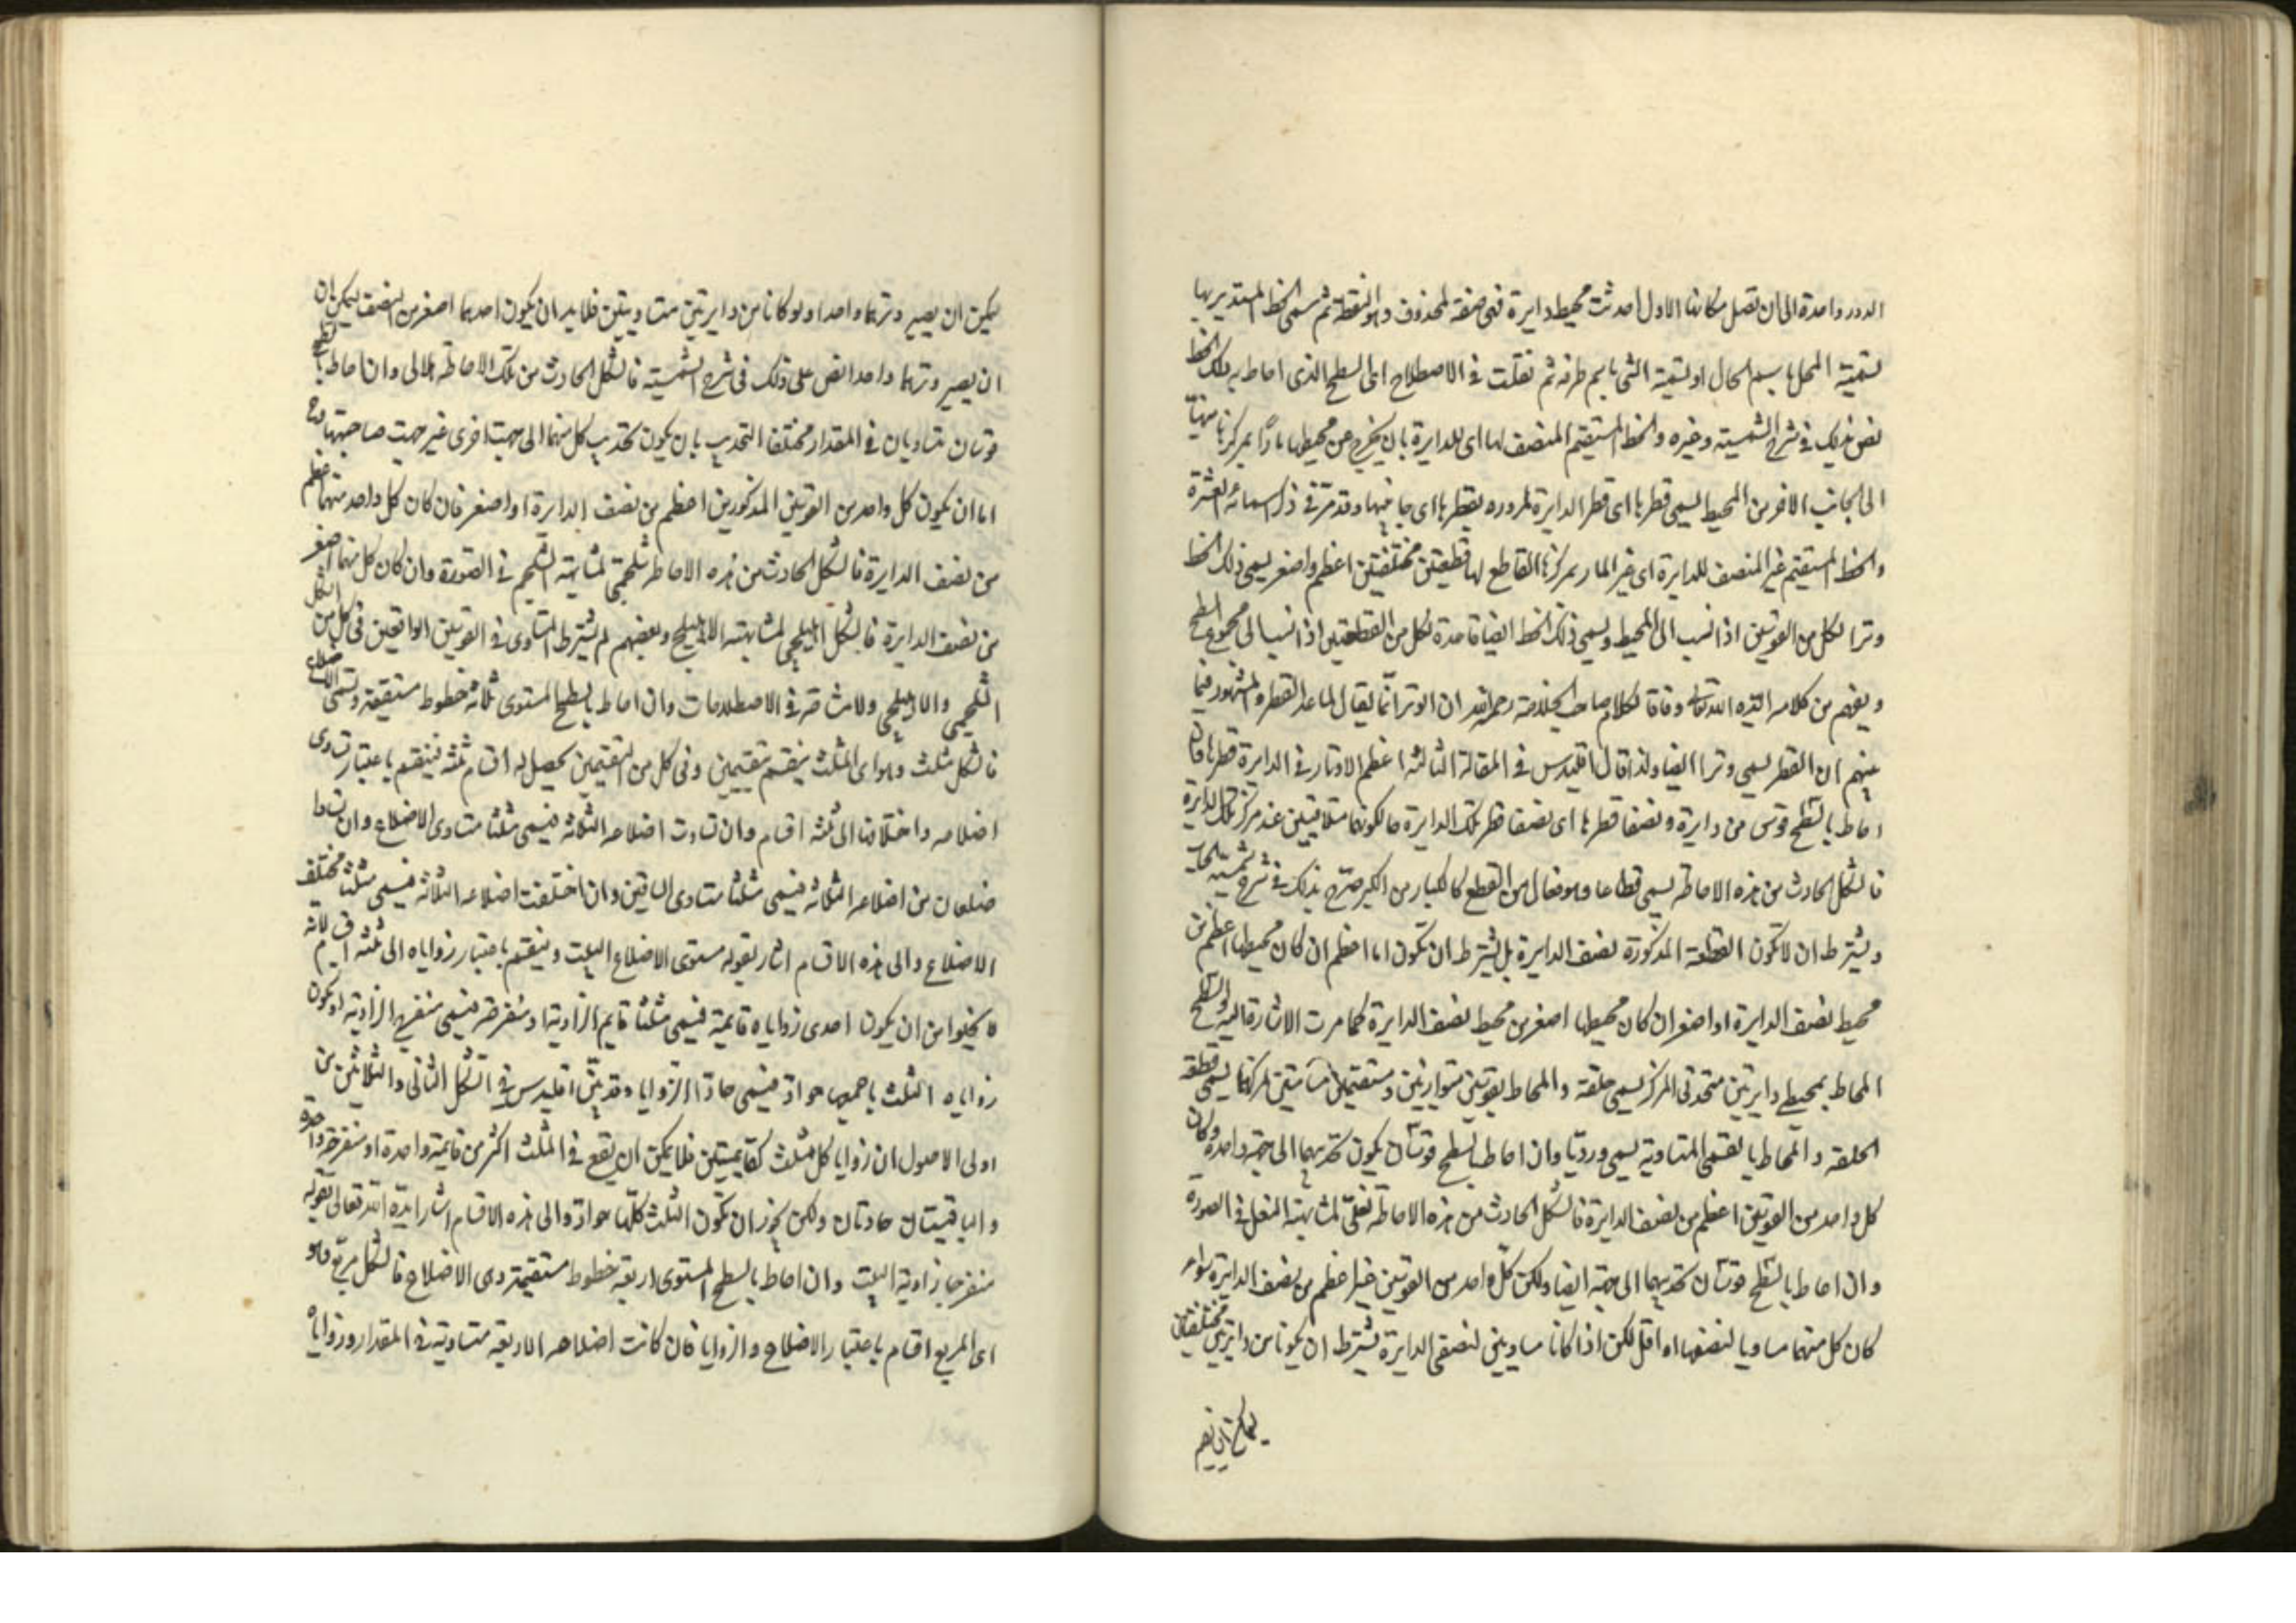 الدور واحدة الى ان تصل مكانها الاول احدثت محيط دايرة فهى صفة لمحذوف وهو النقطة ثم سمى الخط المستدير بها
تسمية المحل باسم الحال او تسمية الشى باسم طرفه ثم نقلت فى الاصطلاح الى السطح الذى احاط به ذلك الخط
نص بذلك فى شرح الشمسية وغيره والخط المستقيم المنصف لها اى للدايرة بان يخرج عن محيطها مارًا بمركزها منتهيا
الى الجانب الاخر من المحيط يسمى قطرها اى قطر الدايرة لمروره بقطرها اى جانبها وقد مرّ فى ذكر اسمائه العشرة
والخط المستقيم غير المنصف للدايرة اى غير المار بمركزها القاطع لها قطعتين مختلفتين اعظم واصغر يسمى ذلك الخط
وترا لكل من القوسين اذا نسب الى المحيط ويسمى ذلك الخط ايضا قاعدة لكل من القطعتين اذا نسب الى مجموع السطح
ويفهم من كلامه ايّده الله تعالى وفاقا لكلام صاحب الخلاصة رحمه الله ان الوتر انّما يقال لما عدا القطر والمشهور فيما
بينهم ان القطر يسمى وترا ايضا ولذا قال اقليدس فى المقالة الثالثة اعظم الاوتار فى الدايرة قطرها وان
احاط بالسّطح قوس من دايرة ونصفا قطرها اى نصفا قطر تلك الدايرة حالكونهما متلاقيين عند مركز تلك الدايرة
فالشكل الحادث من هذه الاحاطة يسمى قطاعا وهو فعال من القطع كالكبار من الكبر صرّح بذلك فى شرح شمسية الحساب
ويشترط ان لا تكون القطعة المذكورة نصف الدايرة بل يشترط ان تكون اما اعظم ان كان محيطها اعظم من
محيط نصف الدايرة او اصغر ان كان محيطها اصغر من محيط نصف الدايرة كما مرت الاشارة اليه والسّطح
المحاط بمحيطى دايرتين متحدتى المركز يسمى حلقة والمحاط بقوسين متوازيتين ومستقيمين مركزهما يسمى قطعة
الحلقة والمحاط بالقسى المتساوية يسمى ورديّا وان احاط بالسطح قوسان يكون تحديبهما الى جهة واحدة وكان
كل واحد من القوسين اعظم من نصف الدايرة فالشكل الحادث من هذه الاحاطة نعلىّ لمشابهته النعل فى الصورة
وان احاط بالسّطح قوسان تحديبهما الى جهة ايضا ولكن كلّ واحد من القوسين غير اعظم من نصف الدايرة سواء
كان كل منهما مساويا لنصفها او اقل لكن اذا كانا مساويين لنصفى الدايرة يشترط ان يكونا من دايرتين مختلفتين
يمكن ان يصير وترهما واحدا ولو كانا من دايرتين متساويتين فلابد ان يكون احدهما اصغر من النصف ليمكن ان
ان يصير وترهما واحدا نص على ذلك فى شرح الشمسية فالشكل الحادث من تلك الاحاطة هلالى وان احاط
قوسان متساويان فى المقدار مختلفا التحديب بان يكون تحديب كل منهما الى جهة اخرى غير جهت صاحبتها
اما ان يكون كل واحد من القوسين المذكورين اعظم من نصف الدايرة او اصغر فان كان كل واحد منهما اعظم
من نصف الدايرة فالشكل الحادث من هذه الاحاطة شلجمىّ لمشابهته الشلجم فى الصّورة وان كان كل منهما اصغر
من نصف الدايرة فالشكل اهليلجى لمشابهته الاهليلج وبعضهم لم يشترط التساوى فى القوسين الواقعين فى كل من الشكل
الشلجمى والاهليلجى ولا مشاحّة فى الاصطلاحات وان احاط بالسطح المستوى ثلاثة خطوط مستقيمة وتسمى الاضلاع
فالشكل مثلث وهو اى المثلث ينقسم بتقسيمين وفى كل من التقسيمين يحصل له اقسام ثلثة فينقسم باعتبار تساوى
اضلاعه واختلافها الى ثلثة اقسام وان تساوت اضلاعه الثلاثة فيسمى مثلثا متساوى الاضلاع وان تساوا
ضلعان من اضلاعه الثلاثة فيسمى مثلثا متساوى الساقين وان اختلفت اضلاعه الثلاثة فيسمى مثلثا مختلف
الاضلاع والى هذه الاقسام اشار بقوله مستوى الاضلاع البيت وينقسم باعتبار زواياه الى ثلثة اقسام لانه
لا يخلو من ان يكون احدى زواياه قايمة فيسمى مثلثا قايم الزاوية او منفرجة فيسمى منفرج الزاوية او يكون
زواياه الثلث باجمعها حوادّ فيسمى حادّ الزوايا وقد بيّن اقليدس فى الشكل الثانى والثلاثين من
اولى الاصول ان زوايا كل مثلث كقايمتين فلا يمكن ان يقع فى المثلث اكثر من قايمة واحدة او منفرجة واحدة
والباقيتان حادتان ولكن يجوز ان تكون الثلث كلّها حوادّ والى هذه الاقسام اشار ايّده الله تعالى بقوله
منفرجا زاوية البيت وان احاط بالسطح المستوى اربعة خطوط مستقيمة وهى الاضلاع فالشكل مربّع وهو
اى المربع اقسام باعتبار الاضلاع والزوايا فان كانت اضلاعه الاربعة متساوية فى المقدار وزواياه